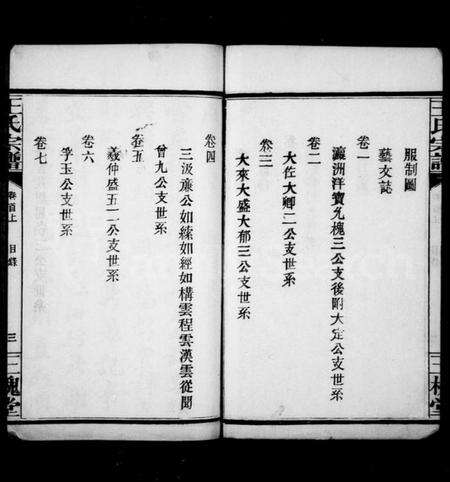 服制圖
藝文誌
卷一
瀛洲洋寶允槐三公支後附大定公支世系
卷二
大佐大卿二公支世系
卷三
大來大盛大郁三公支世系
卷四
三汲廉公如綵如經如構雲程雲漢雲從聞
曾九公支世系
卷五
羲仲盛五二公支世系
卷六
孚玉公支世系
卷七
王氏宗譜
卷首上
目錄
三
三槐堂